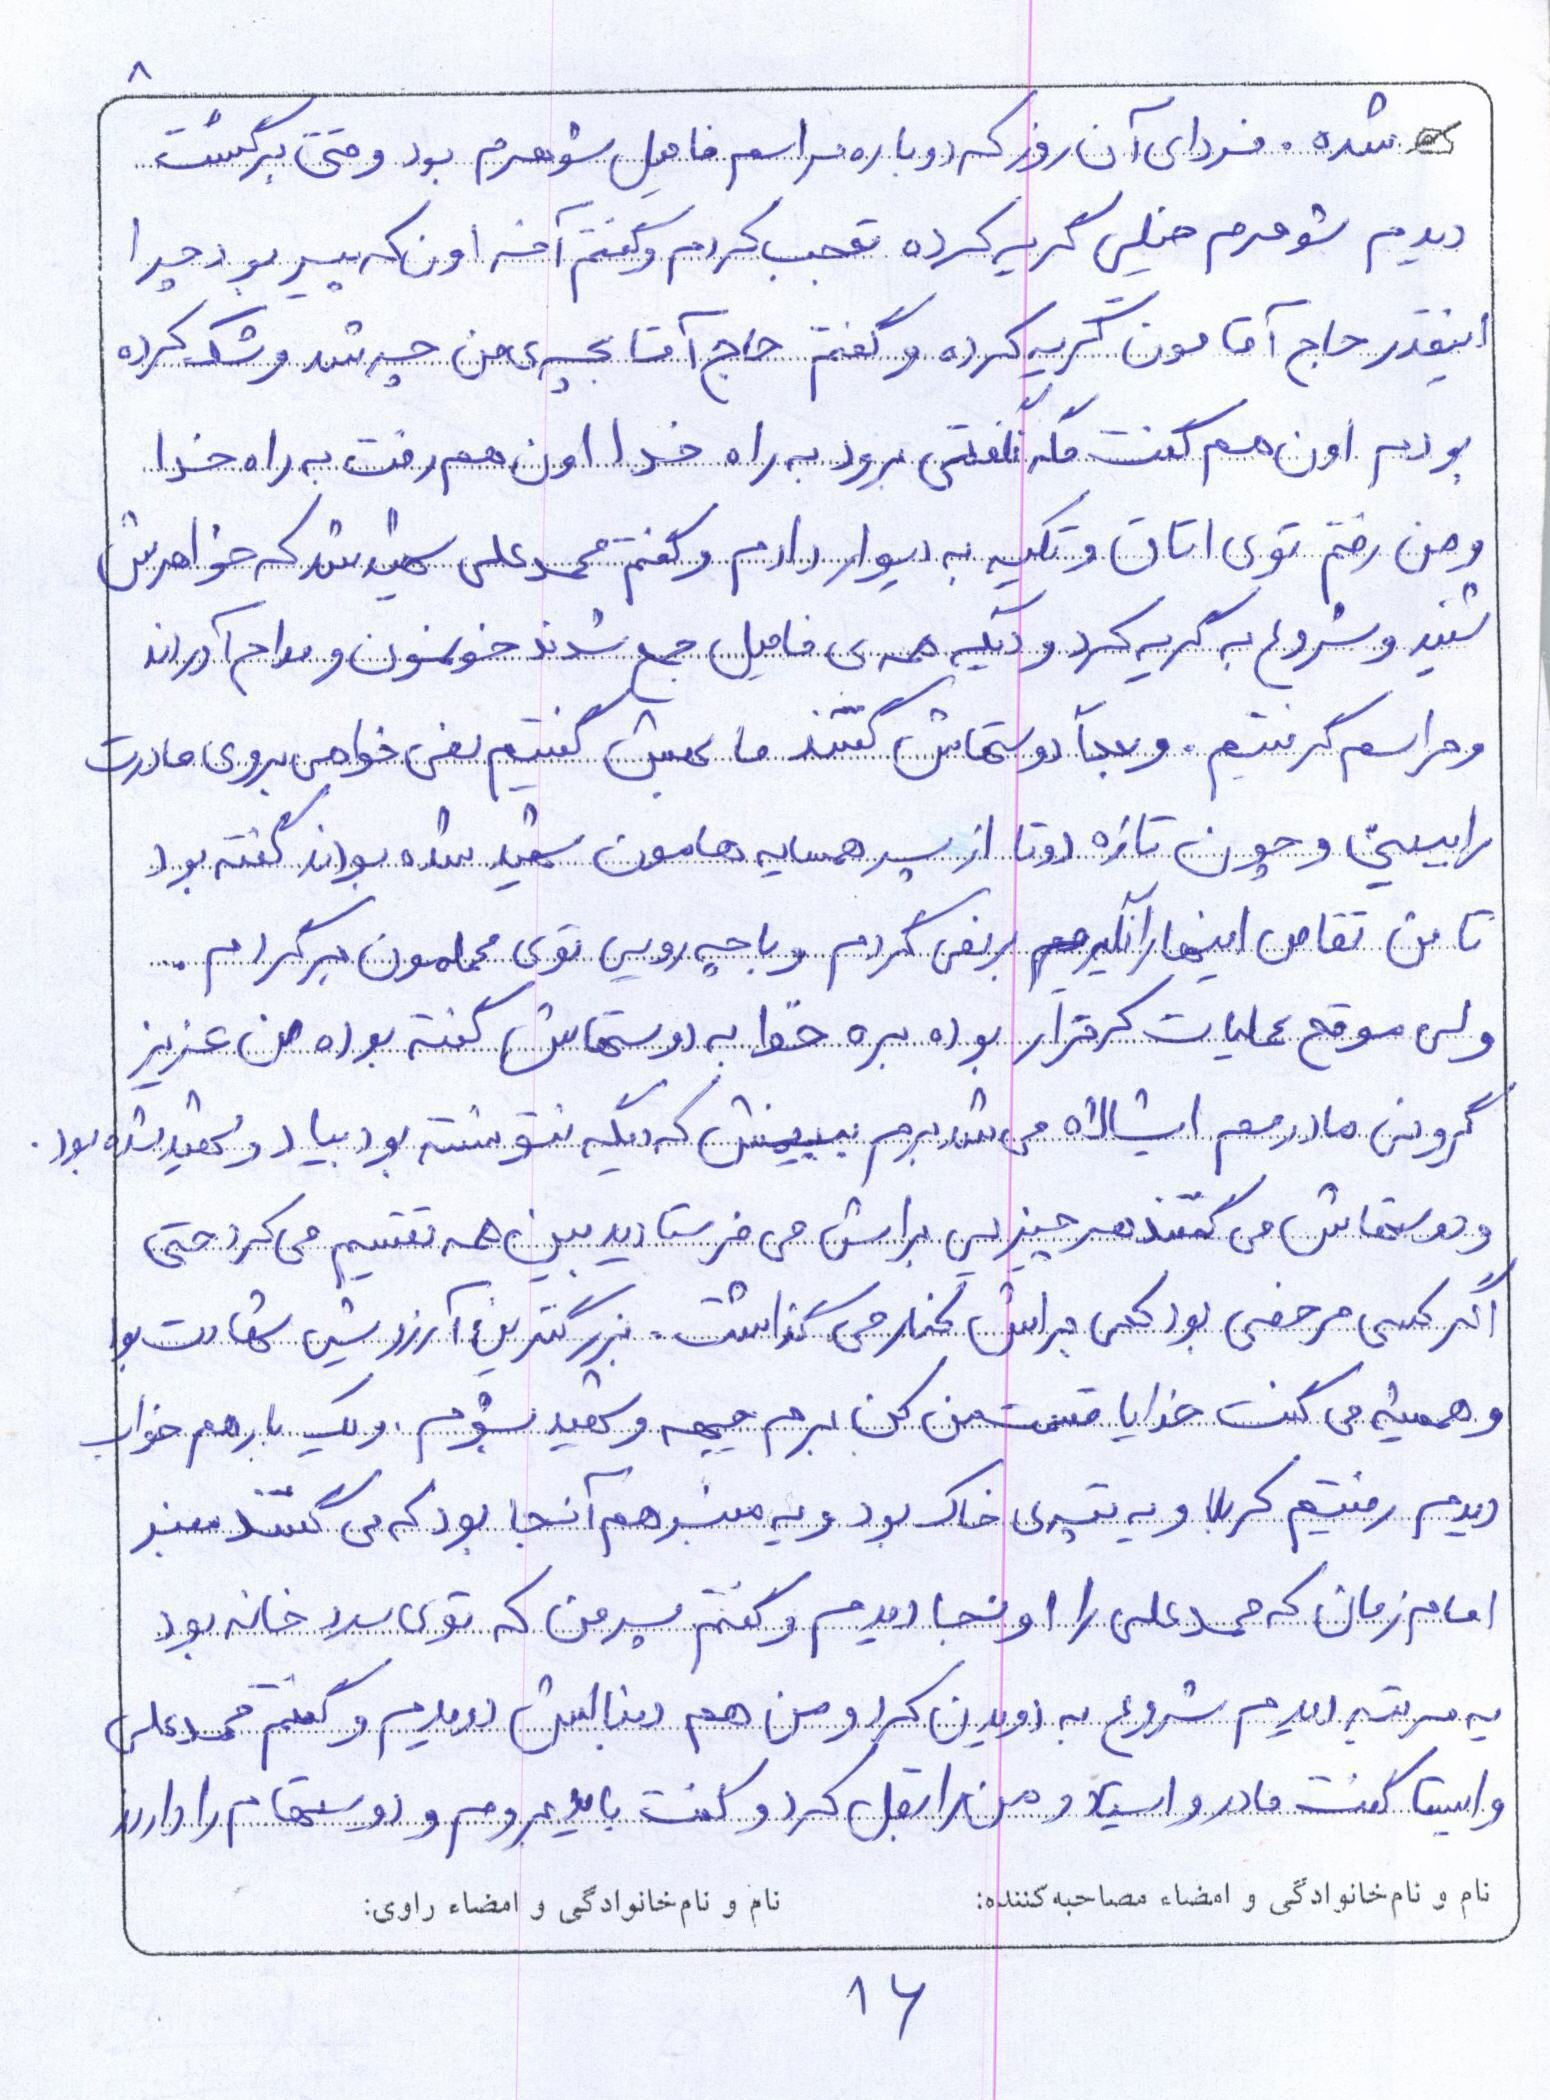 ۸
شده . فردای آن روز که دوباره مراسم فامیل شوهرم بود وقتی برگشت
دیدم شوهرم خیلی گریه کرده تعجب کردم و گفتم آخه اون که پیر بود چرا
اینقدر حاج آقامون گریه کرده و گفتم حاج آقا بچه‌ی من چه شد و شک کرده
بودم اون هم گفت مگه نگفتی برود به راه خدا اون هم رفت به راه خدا
و من رفتم توی اتاق و تکیه به دیوار دادم و گفتم محمدعلی شهید شد که خواهرش
شنید و شروع به گریه کرد و دیگه همه ی فامیل جمع شدند خونمون و مدام آمدند
و مراسم گرفتیم . و بعداً دوستهاش گفتند ما بهش گفتیم نمی خواهی بروی مادرت
را ببینی و چون تازه دوتا از پسر همسایه هامون شهید شده بودند گفته بود
تا من تقاص اینها را نگیرم بر نمی گردم و با چه رویی توی محلمون برگردم ..
ولی موقع عملیات که قرار بوده بره خدا به دوستهاش گفته بوده من عزیز
گرونی مادرمم ایشالاه می شد برم ببینمش که دیگه نتونسته بود بیاد و شهید شده بود .
و دوستهاش می گفتند هر چیزیی براش می فرستادید بین همه تقسیم می کرد حتی
اگر کسی مرخصی بود کمی براش کنار می گذاشت . بزرگترین آرزویش شهادت بود
و همیشه می گفت خدایا قسمت من کن برم جبهه و شهید بشوم . و یک بار هم خواب
دیدم رفتیم کربلا و یه تپه‌ی خاک بود و یه منبر هم آنجا بود که می گفتند منبر
امام زمان که محمدعلی را اونجا دیدم و گفتم پسر من که توی سرد خانه بود
یه مرتبه دیدم شروع به دویدن کرد و من هم دنبالش دویدم و گفتم محمدعلی
وایستا گفت مادر و ایستاد و من را بغل کرد و گفت باید بروم و دوستهام را دارند
نام و نام‌خانوادگی و امضاء مصاحبه‌کننده:
نام و نام‌خانوادگی و امضاء راوی:
۱۶